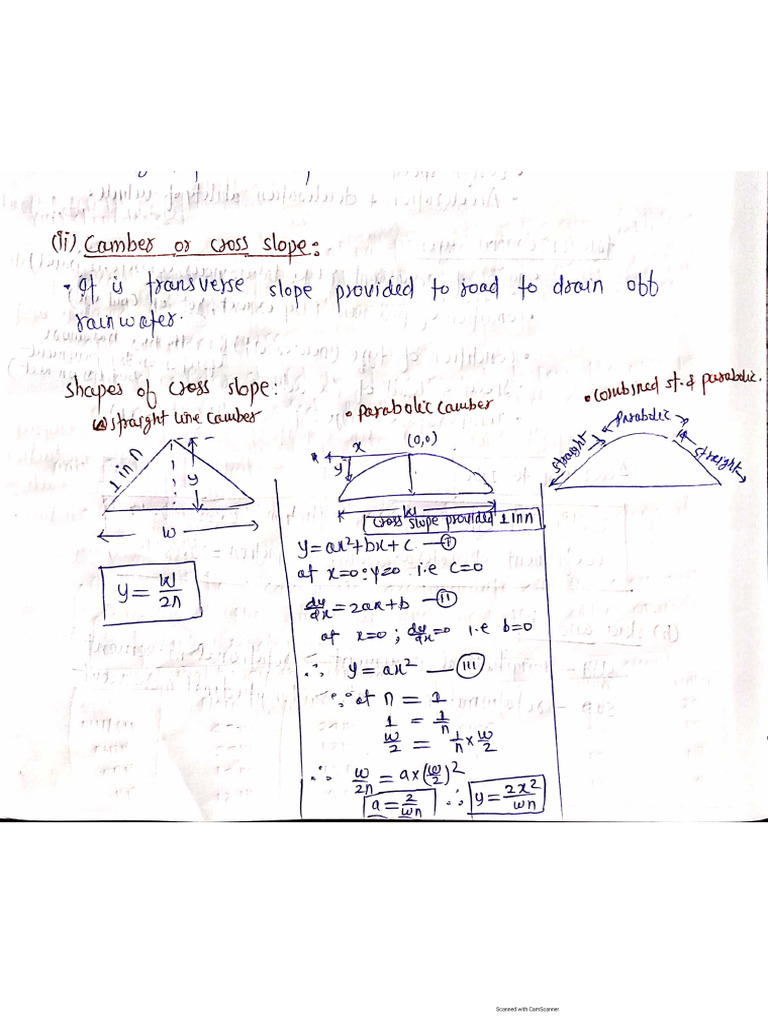 (ii) Camber or cross slope:
• It is transverse slope provided to road to drain off
rainwater.
shapes of cross slope:
straight line camber
1 in n
y
w
y = w/2n
• Parabolic camber
x
(0,0)
y
w
cross slope provided 1 in n
y = ax² + bx + c —(i)
at x=0 : y=0 i.e c=0
dy/dx = 2ax + b —(ii)
at x=0 ; dy/dx=0 i.e b=0
∴ y = ax² —(iii)
∵ at n = 1
1 = 1/n
w/2 = 1/n × w/2
∴ w/2n = a×(w/2)²
a = 2/wn ∴ y = 2x²/wn
• combined st. & parabolic.
straight
parabolic
straight
Scanned with CamScanner